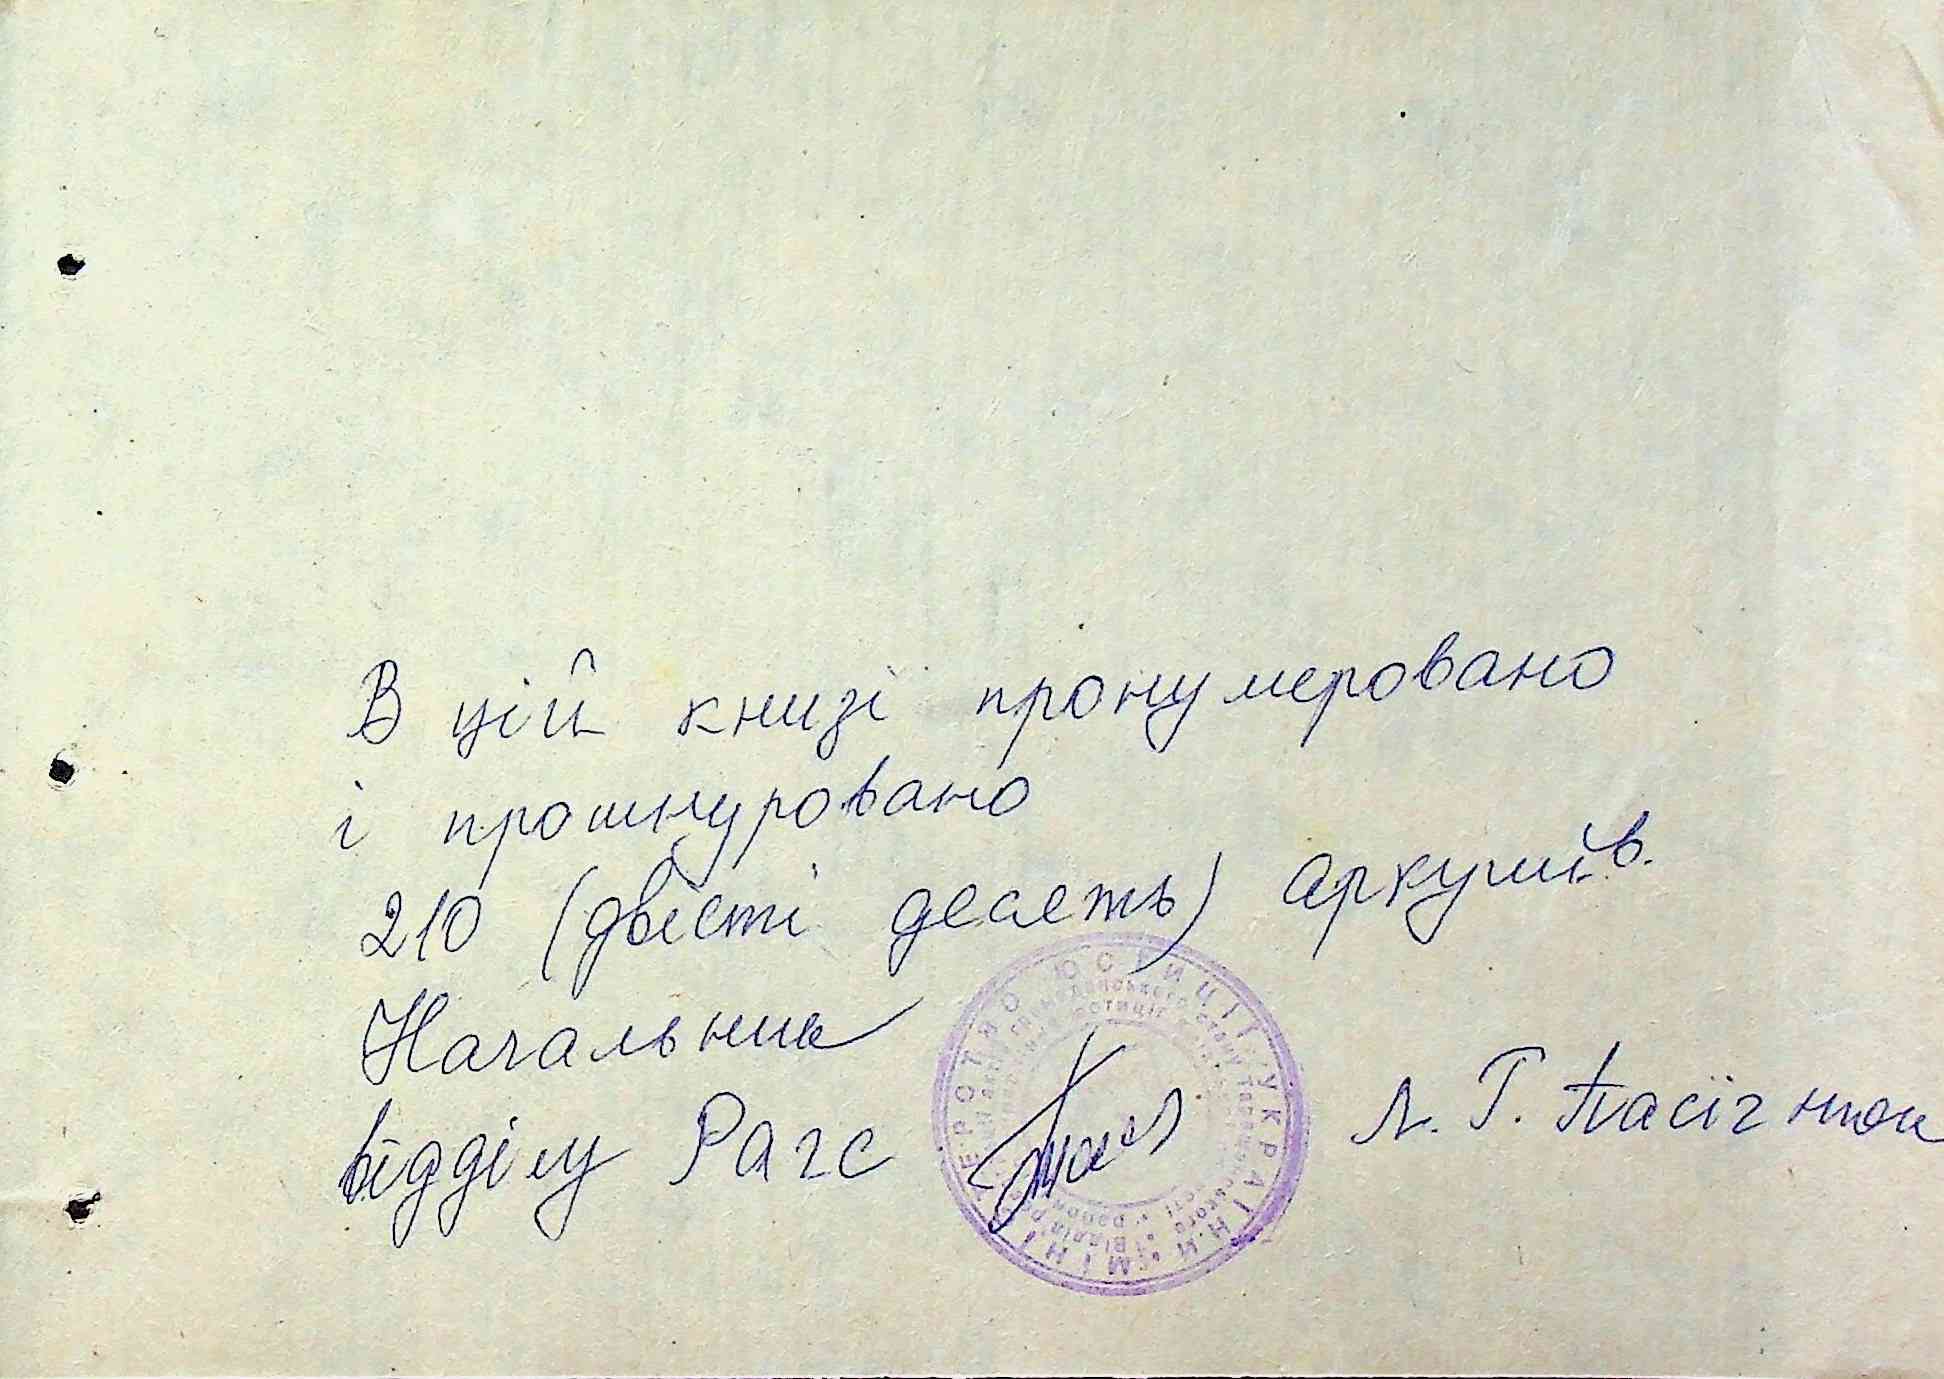 В цій книзі пронумеровано
і прошнуровано
210 (двісті десять) аркушів.
Начальник
відділу Рагс Л. Г. Пасічнюк
МІНІСТЕРСТВО ЮСТИЦІЇ УКРАЇНИ